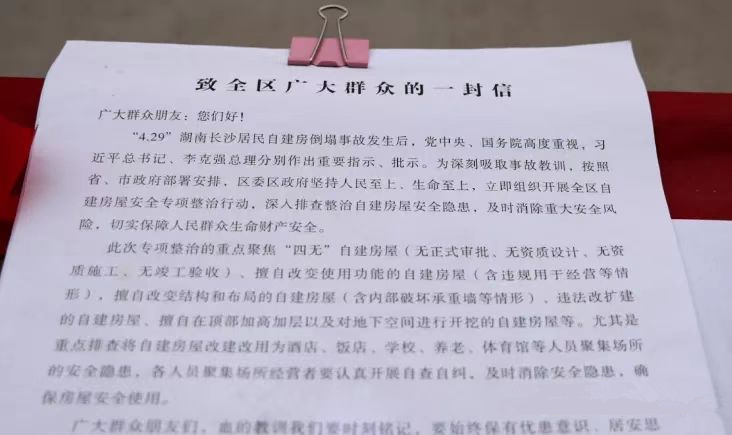 致全区广大群众的一封信
广大群众朋友：您们好！
“4.29”湖南长沙居民自建房倒塌事故发生后，党中央、国务院高度重视，习
近平总书记、李克强总理分别作出重要指示、批示。为深刻吸取事故教训，按照
省、市政府部署安排，区委区政府坚持人民至上、生命至上，立即组织开展全区自
建房屋安全专项整治行动，深入排查整治自建房屋安全隐患，及时消除重大安全风
险，切实保障人民群众生命财产安全。
此次专项整治的重点聚焦“四无”自建房屋（无正式审批、无资质设计、无资
质施工、无竣工验收）、擅自改变使用功能的自建房屋（含违规用于经营等情
形），擅自改变结构和布局的自建房屋（含内部破坏承重墙等情形）、违法改扩建
的自建房屋、擅自在顶部加高加层以及对地下空间进行开挖的自建房屋等。尤其是
重点排查将自建房屋改建改用为酒店、饭店、学校、养老、体育馆等人员聚集场所
的安全隐患，各人员聚集场所经营者要认真开展自查自纠，及时消除安全隐患，确
保房屋安全使用。
广大群众朋友们，血的教训我们要时刻铭记，要始终保有忧患意识、居安思